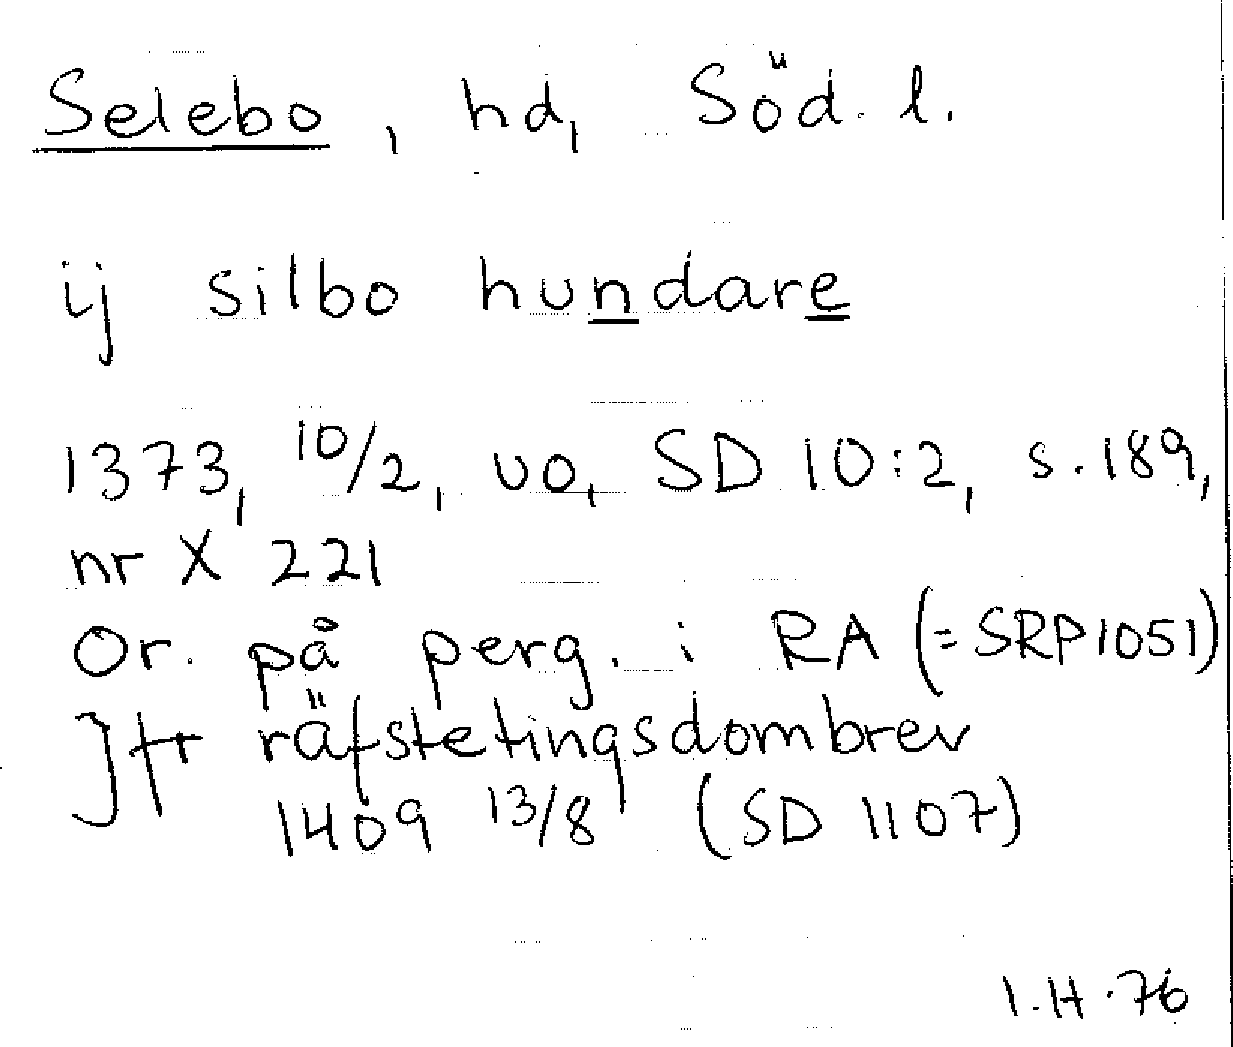 Selebo, hd, Söd. l.
ij silbo hundare
1373, 10/2, uo, SD 10:2, s. 189,
nr X 221
Or. på perg. i RA (=SRP1051)
Jfr räfstetingsdombrev
1409 13/8 (SD 1107)
I.H.76